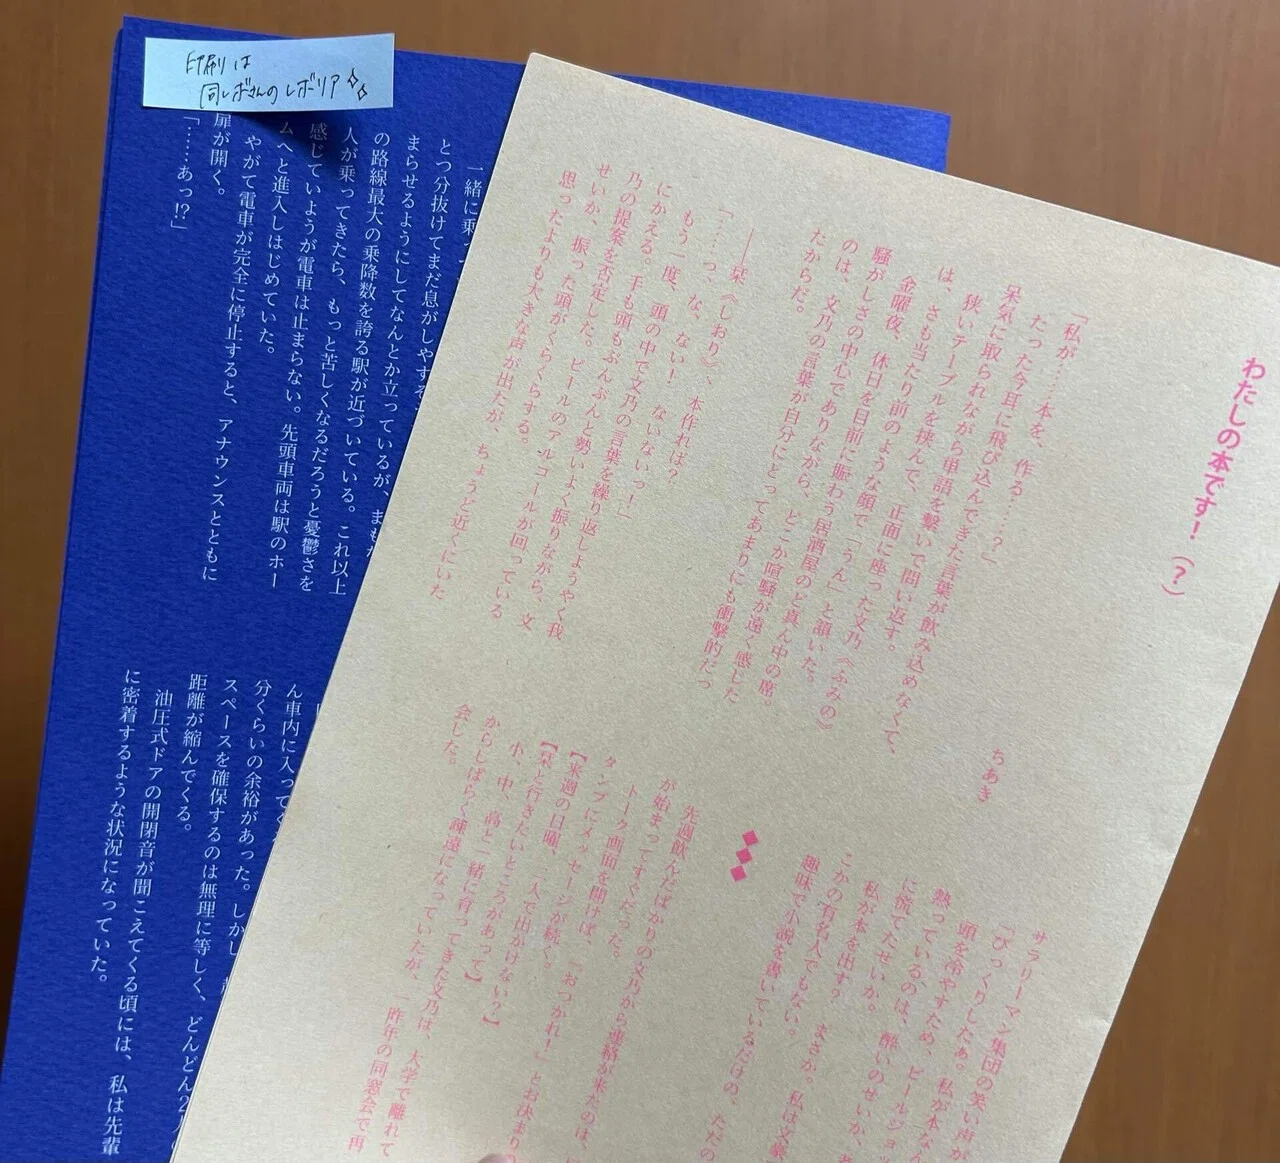 印刷は
同レボさんのレボリア
一緒に乗っ
とつ分抜けてまだ息がしやすそ
まらせるようにしてなんとか立っているが、まもな
の路線最大の乗降数を誇る駅が近づいている。これ以上
人が乗ってきたら、もっと苦しくなるだろうと憂鬱さを
感じていようが電車は止まらない。先頭車両は駅のホー
ムへと進入しはじめていた。
やがて電車が完全に停止すると、アナウンスとともに
扉が開く。
「……あっ!?」
ん車内に入ってく
分くらいの余裕があった。しかし
スペースを確保するのは無理に等しく、どんどん2人の
距離が縮んでくる。
油圧式ドアの開閉音が聞こえてくる頃には、私は先輩
に密着するような状況になっていた。
わたしの本です!(?)
ちあき
「私が……本を、作る……?」
たった今耳に飛び込んできた言葉が飲み込めなくて、
呆気に取られながら単語を繋いで問い返す。
狭いテーブルを挟んで、正面に座った文乃《ふみの》
は、さも当たり前のような顔で「うん」と頷いた。
金曜夜、休日を目前に賑わう居酒屋のど真ん中の席。
騒がしさの中心でありながら、どこか喧騒が遠く感じた
のは、文乃の言葉が自分にとってあまりにも衝撃的だっ
たからだ。
――栞《しおり》、本作れば?
「……っ、な、ない! ないないっ!」
もう一度、頭の中で文乃の言葉を繰り返しようやく我
にかえる。手も頭もぶんぶんと勢いよく振りながら、文
乃の提案を否定した。ビールのアルコールが回っている
せいか、振った頭がくらくらする。
思ったよりも大きな声が出たが、ちょうど近くにいた
サラリーマン集団の笑い声が
「びっくりしたぁ。私が本なん
頭を冷やすため、ビールジョッ
熱っているのは、酔いのせいか、
に慌てたせいか。
私が本を出す? まさか。私は文
こかの有名人でもない。
趣味で小説を書いているだけの、ただの
◆◆◆
先週飲んだばかりの文乃から連絡が来たのは、
が始まってすぐだった。
トーク画面を開けば、「おつかれ!」とお決まりの
タンプにメッセージが続く。
【来週の日曜、二人で出かけない?】
【栞と行きたいところがあって】
小、中、高と一緒に育ってきた文乃は、大学で離れて
からしばらく疎遠になっていたが、昨年の同窓会で再
会した。